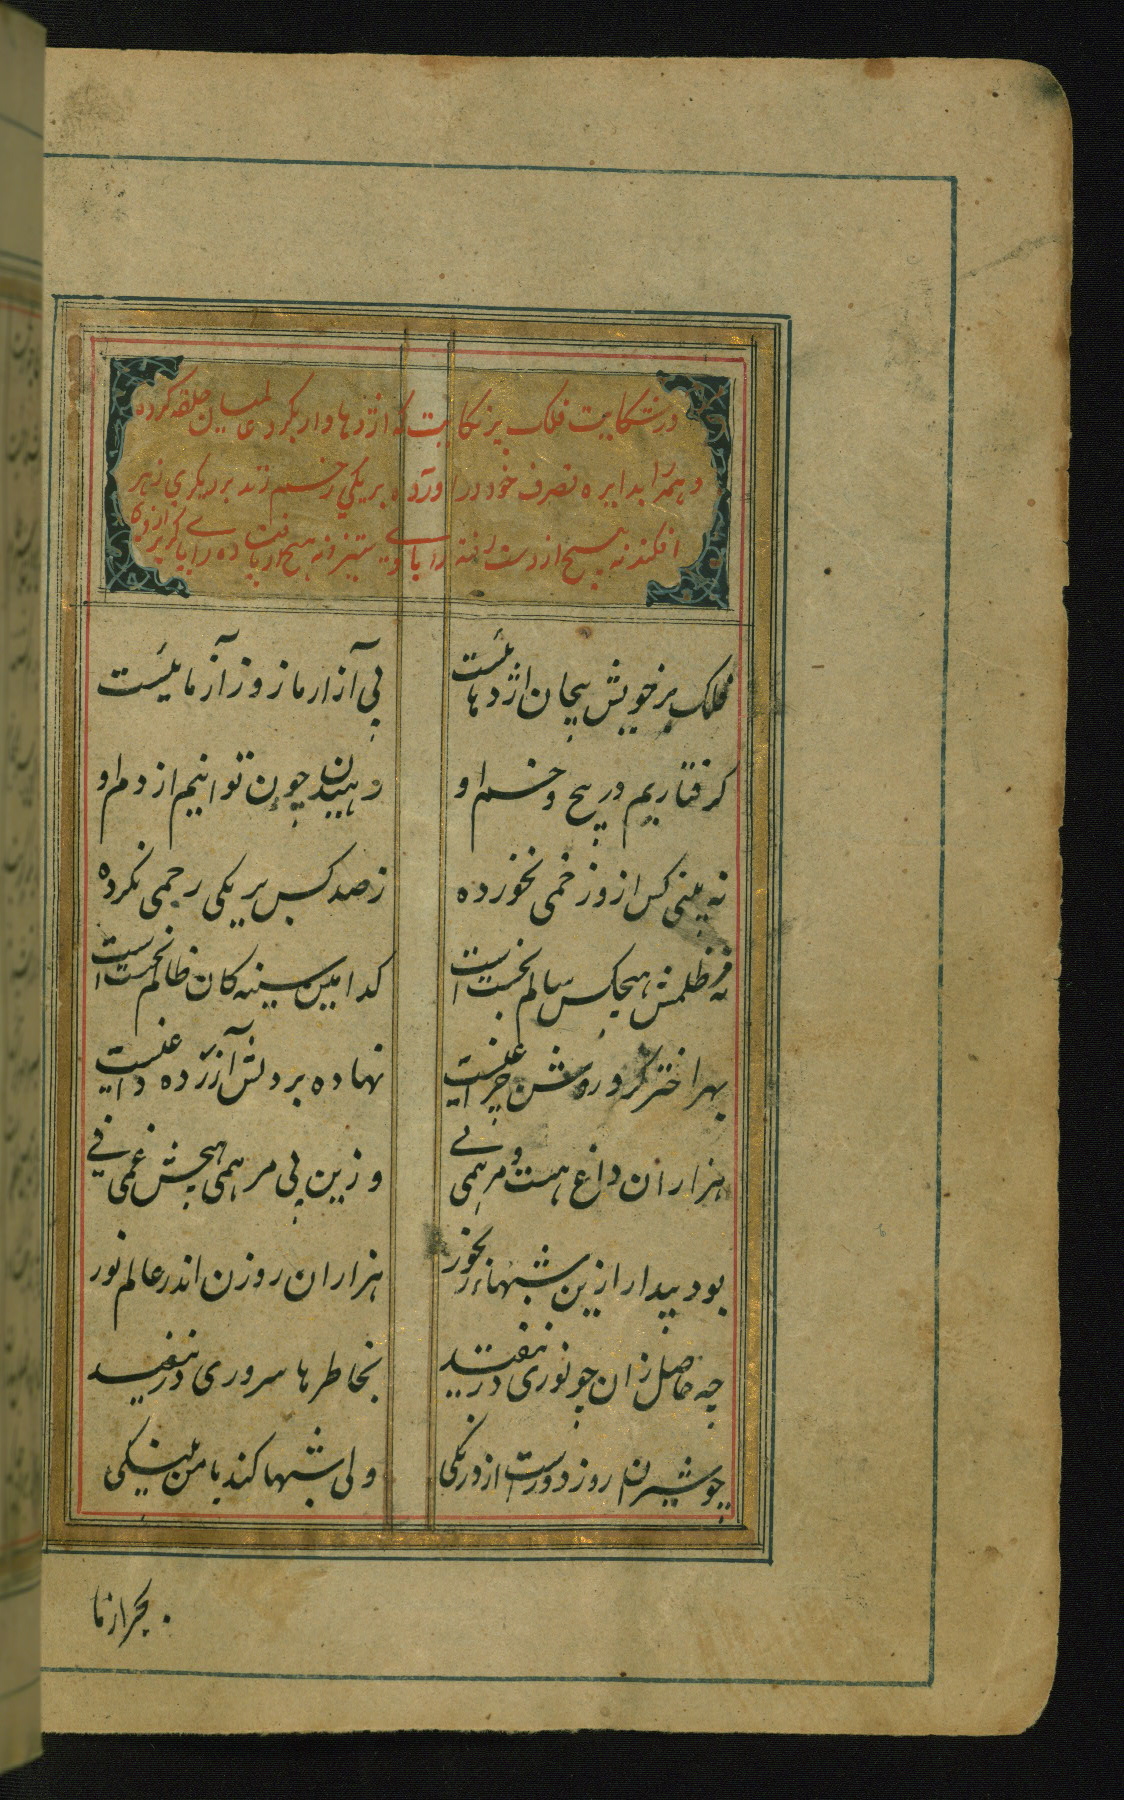 در شکایت فلک پر نکایت که اژدها وار بگرد عالمیان حلقه کرده
و همه را بدایره تصرف خود در آورده بر یکی زخم زند بر دیکری زهر
افکند نه هیچ از دست رفته را با وی ستیز و نه هیچ از پا فتاده را پای کریز از وی
فلک بر خویش پیچان اژدهائیست
پی آزار ما زور آزمائیست
کرفتاریم در پیچ و خم او
رهیدن چون توانیم از دم او
نه بینی کس ازو زخمی نخورده
ز صد کس بر یکی رحمی نکرده
نه ظلمش هیچکس سالم بجست است
کدامین سینه کان ظالم نخست است
بهر اختر کزو روشن چراغیست
نهاده بر دلش آزرده داغیست
هزاران داغ هست و مرهمی نی
وزین بی مرهمی هیچش غمی نی
بود بیدار ازین شبهاء رنجور
هزاران روزن اندر عالم نور
چه حاصل زان چو نوری در نیفتد
بخاطرها سروری در نیفتد
چو شیران روز دورست از دو رنکی
ولی شبها کند با من پلنکی
بجر از ما